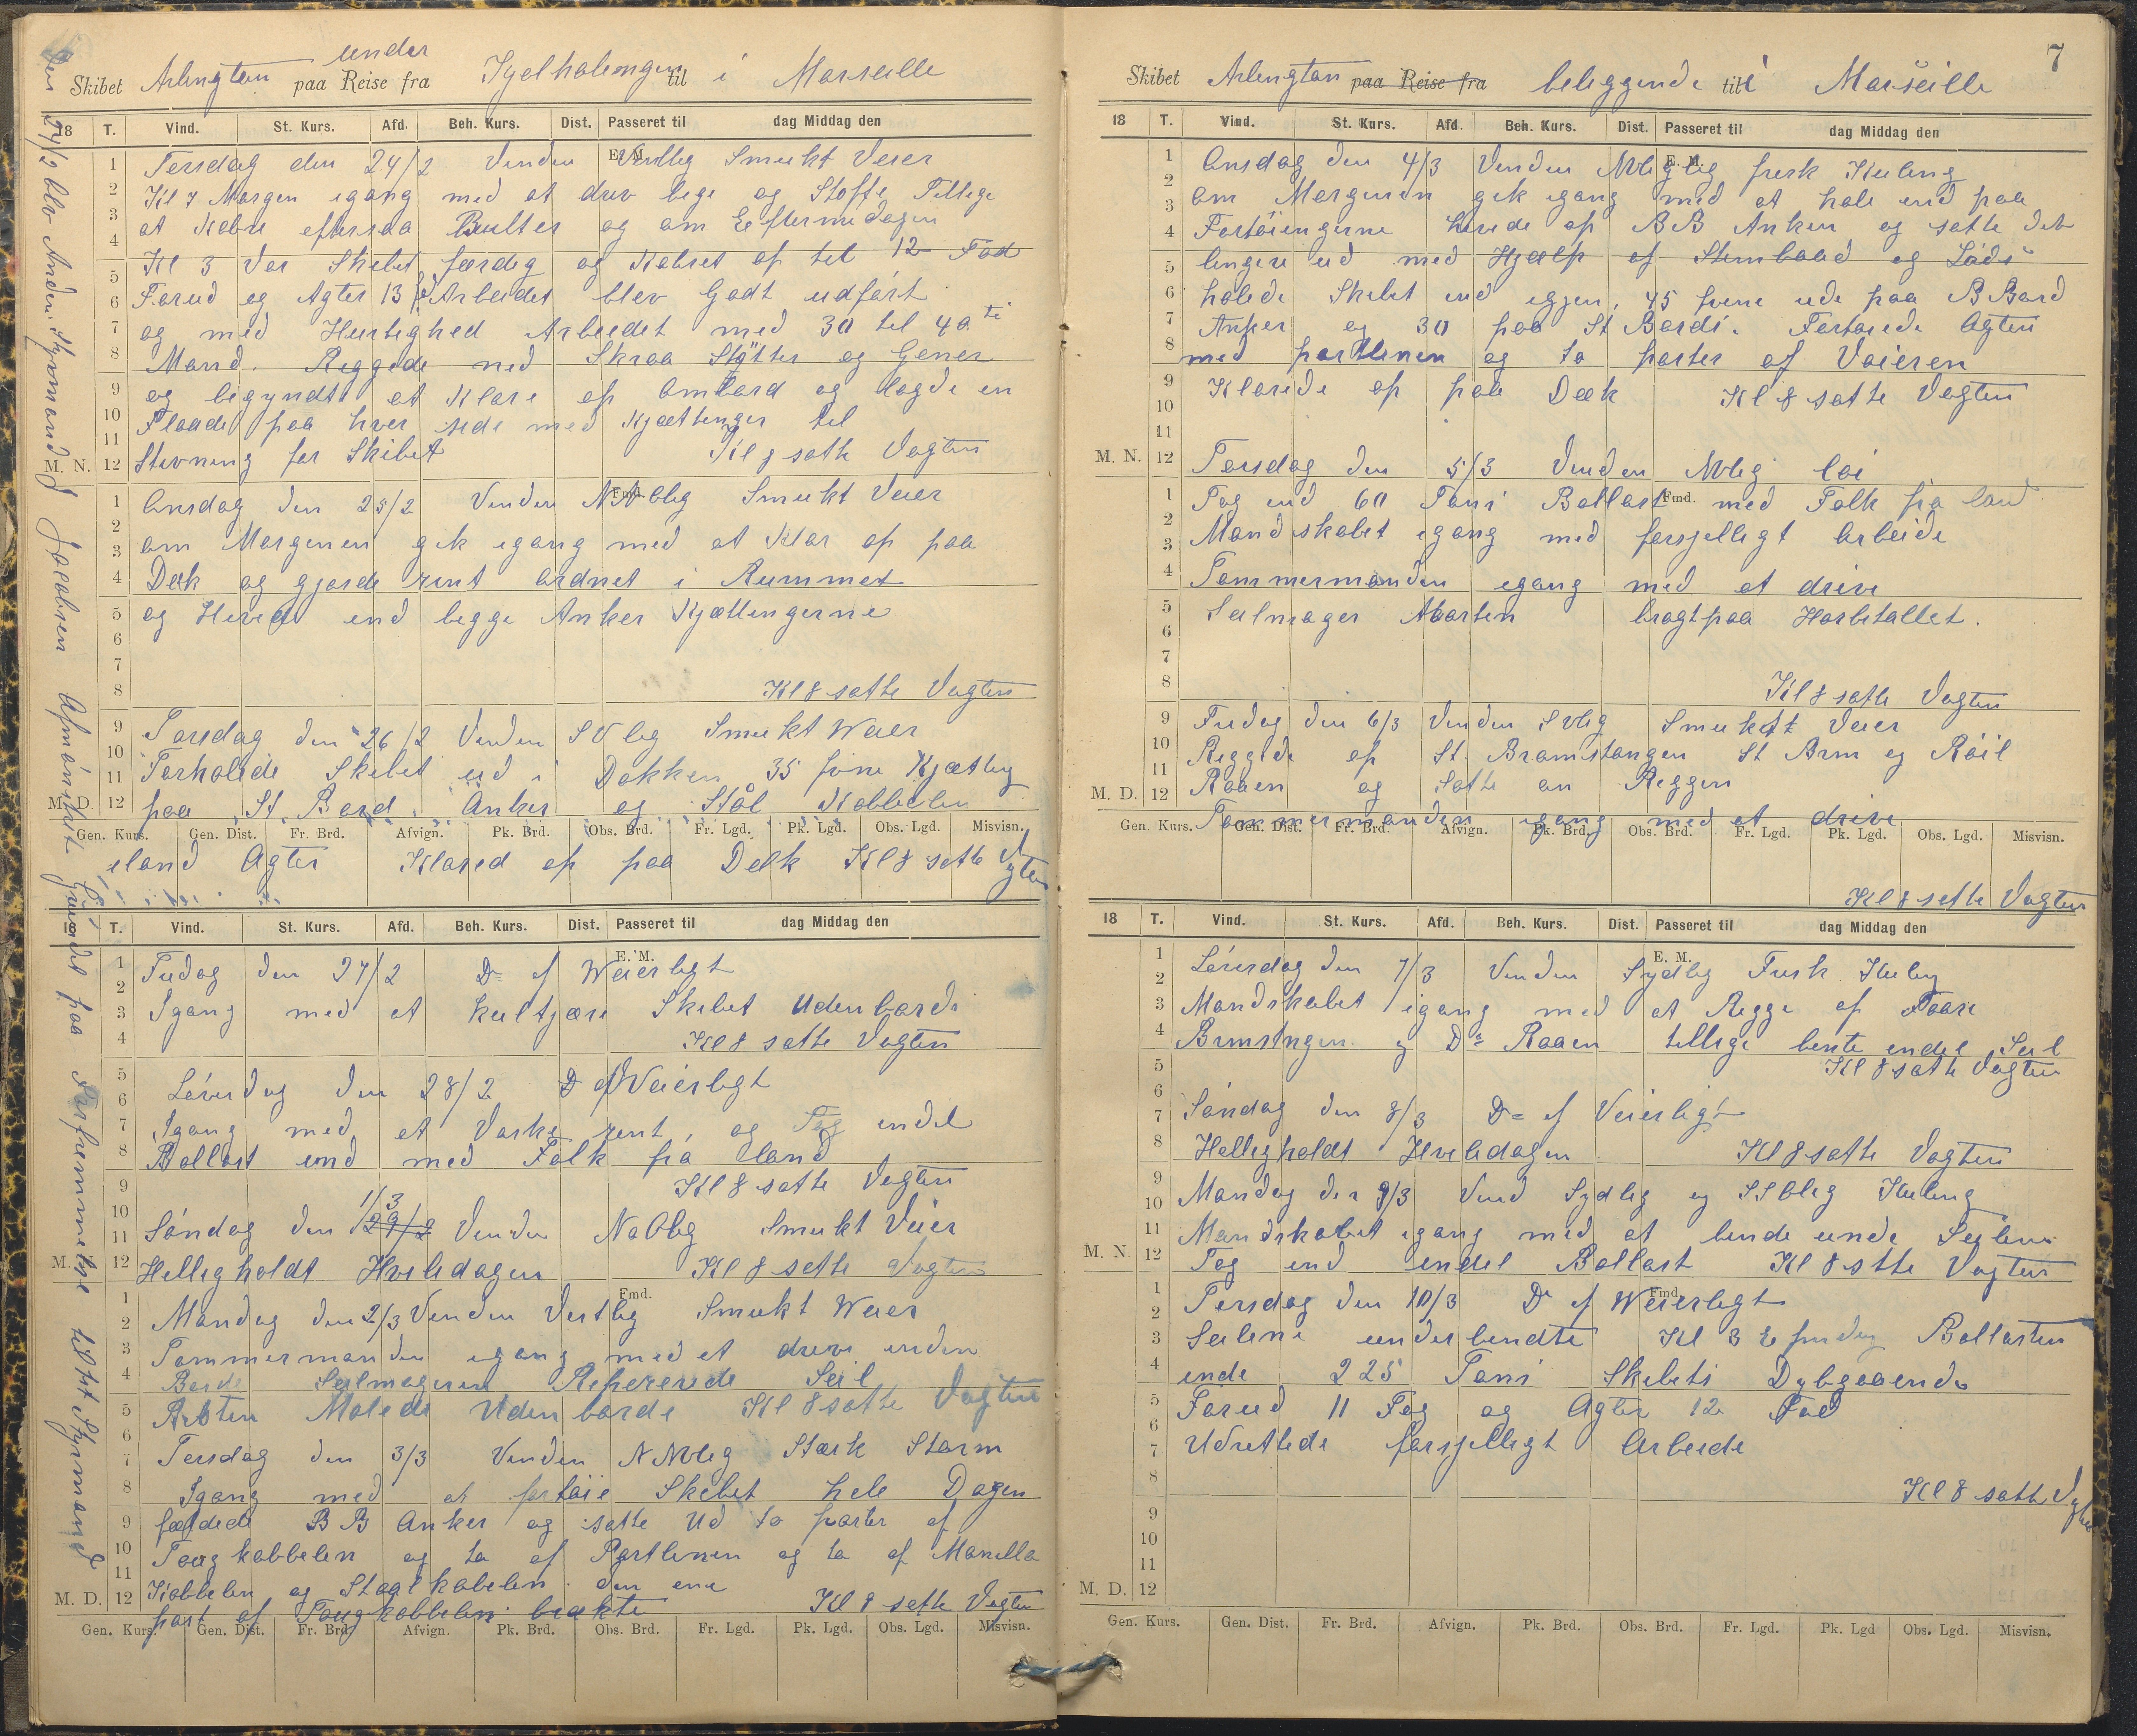 Skibet Arlington under paa Reise fra Kjelhalingen til i Marseille
18 T. Vind. St. Kurs. Afd. Beh. Kurs. Dist. Passeret til dag Middag den
Tersdag den 24/2 Vinden Vestlig Smukt Veier
Kl 7 Morgen igang med at driv lige og Stoffe Tillige
at Kobre eftersaa Bulter og om Eeftermedagen
Kl 3 Var Skibet færdig og Kobret op tel 12 Fod
Forud og Agter 13 Arbeidet blev Godt udført
og med Hurtighed Arbeidet med 30 til 40 ti
Mand. Reggede ned Skraa Støtter og Gener
og begyndte at Klare op ombord og lagde en
Flaade paa hver side med Kjættinger til
Stevning for Skibet Kl 8 satte Vagten
Onsdag den 25/2 Vinden NNOlig Smukt Veier
om Morgenen gik igang med at Klar op paa
Dæk og gjorde rent ordnet i Rummet
og Heved ind begge Anker Kjættingerne
Kl 8 satte Vagten
Torsdag den 26/2 Vinden SVlig Smukt Weier
Forhalede Skibet ud i Dokken 35 fvne Kjætting
paa St. Bord Anker og Stål Kobbelen
Gen. Kurs. Gen. Dist. Fr. Brd. Afvign. Pk. Brd. Obs. Brd. Fr. Lgd. Pk. Lgd. Obs. Lgd. Misvisn.
iland Agter Klared op paa Dæk Kl 8 satte Vgten
18 T. Vind. St. Kurs. Afd. Beh. Kurs. Dist. Passeret til dag Middag den
E. M.
Fredag den 27/2 Do af Weierligt
Igang med at kultjære Skibet Udenbords
Kl 8 satte Vagten
Löverdag den 28/2 Do af Veierligt
Igang med at Vaske rent, og Tog endel
Ballast ind med Folk fra land
Kl 8 satte Vagten
1/3
Søndag den 29/2 Vinden NoOlig Smukt Veier
Helligholdt Hviledagen Kl 8 satte Vagten
Fmd.
Mandag den 2/3 Vinden Vestlig Smukt Weier
Tommermanden igang med at drive uden
Bords Seilmageren Reperede Seil
Resten Malede Udenbords Kl 8 satte Vagten
Tersdag den 3/3 Vinden NNVlig Stærk Storm
Igang med at fortøie Skibet hele Dagen
fældede BB Anker og satte Ud to parter af
Toug kobbelen og to af Partlinen og to af Manella
Kobbelen og Staalkobelen den ene
part af Tougkobbelen brækte Kl 8 satte Vagten
M. D.
Gen. Kurs. Gen. Dist. Fr. Brd. Afvign. Pk. Brd. Obs. Brd. Fr. Lgd. Pk. Lgd. Obs. Lgd. Misvisn.
Den 27/2 blev Anden Styrmand J Jacobsen Afmönstret Grundet paa Forfremmelse til 1ste Styrmand
7
Skibet Arlington paa Reise fra beliggende til i Marseille
18 T. Vind. St. Kurs. Afd. Beh. Kurs. Dist. Passeret til dag Middag den
E. M.
Onsdag den 4/3 Vinden NVlig frisk Kuling
om Morgenen gik igang med at hale ind paa
Fortøiengerne Hivede op BB Anker og satte det
lengere ud med Hjælp af Stimbaad og Lods
halede Skibet ind igjen, 45 fvene ude paa B Bord
Anker og 30 paa St Bords. Fortøiede Agter
med partlinen og to parter af Vaieren
Klarede op paa Dæk Kl 8 satte Vagten
M. N.
Torsdag den 5/3 Vinden NVlig Löi
Fmd.
Tog ind 60 Tons Ballast med Folk fra land
Mandskabet igang med forsjelligt Arbeide
Tommermanden igang med at drive
Seilmager Marten bragt paa Hospitallet.
Kl 8 satte Vagten
Fredag den 6/3 Vinden SVlig Smukt Veier
Reggede op St. Bramstangen St Brm og Röil
Raaen og Satte an Reggen
M. D.
Tommermanden igang med at drive
Gen. Kurs. Gen. Dist. Fr. Brd. Afvign. Pk. Brd. Obs. Brd. Fr. Lgd. Pk. Lgd. Obs. Lgd. Misvisn.
Kl 8 satte Vagten
18 T. Vind. St. Kurs. Afd. Beh. Kurs. Dist. Passeret til dag Middag den
E. M.
Löverdag den 7/3 Vinden Sydlig Frisk Kuling
Mandskabet igang med at Regge op Faare
Brmstngen og Do Raaen tillige bente endel Seil
Kl 8 satte Vagten
Søndag den 8/3 Do af Veierligt
Helligholdt Hviledagen Kl 8 satte Vagten
Mandag den 9/3 Vind Sydlig og SSOlig Kuling
Mandskabet igang med at bende unde Seilene
M. N.
Tog ind endel Ballast Kl 8 stte Vagten
Fmd.
Tersdag den 10/3 Do af Weierligt
Seilene underbendte Kl 3 Ballasten
inde 225 Tons Skibets Dybgaaende
Forud 11 Fog og Agter 12 Fod
Udrettede forsjelligt Arbeide
Kl 8 satte Vgten
M. D.
Gen. Kurs. Gen. Dist. Fr. Brd. Afvign. Pk. Brd. Obs. Brd. Fr. Lgd. Pk. Lgd Obs. Lgd. Misvisn.